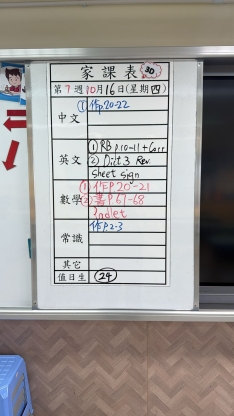 家課表 3D
第7週10月16日(星期四)
中文 ①作p.20-22
英文 ①RB p10-11 + Corr
② Dict 3 Rev.
sheet sign
數學 ①作P.20-21
②書P.67-68
Padlet
常識 作P.2-3
其它
值日生 24